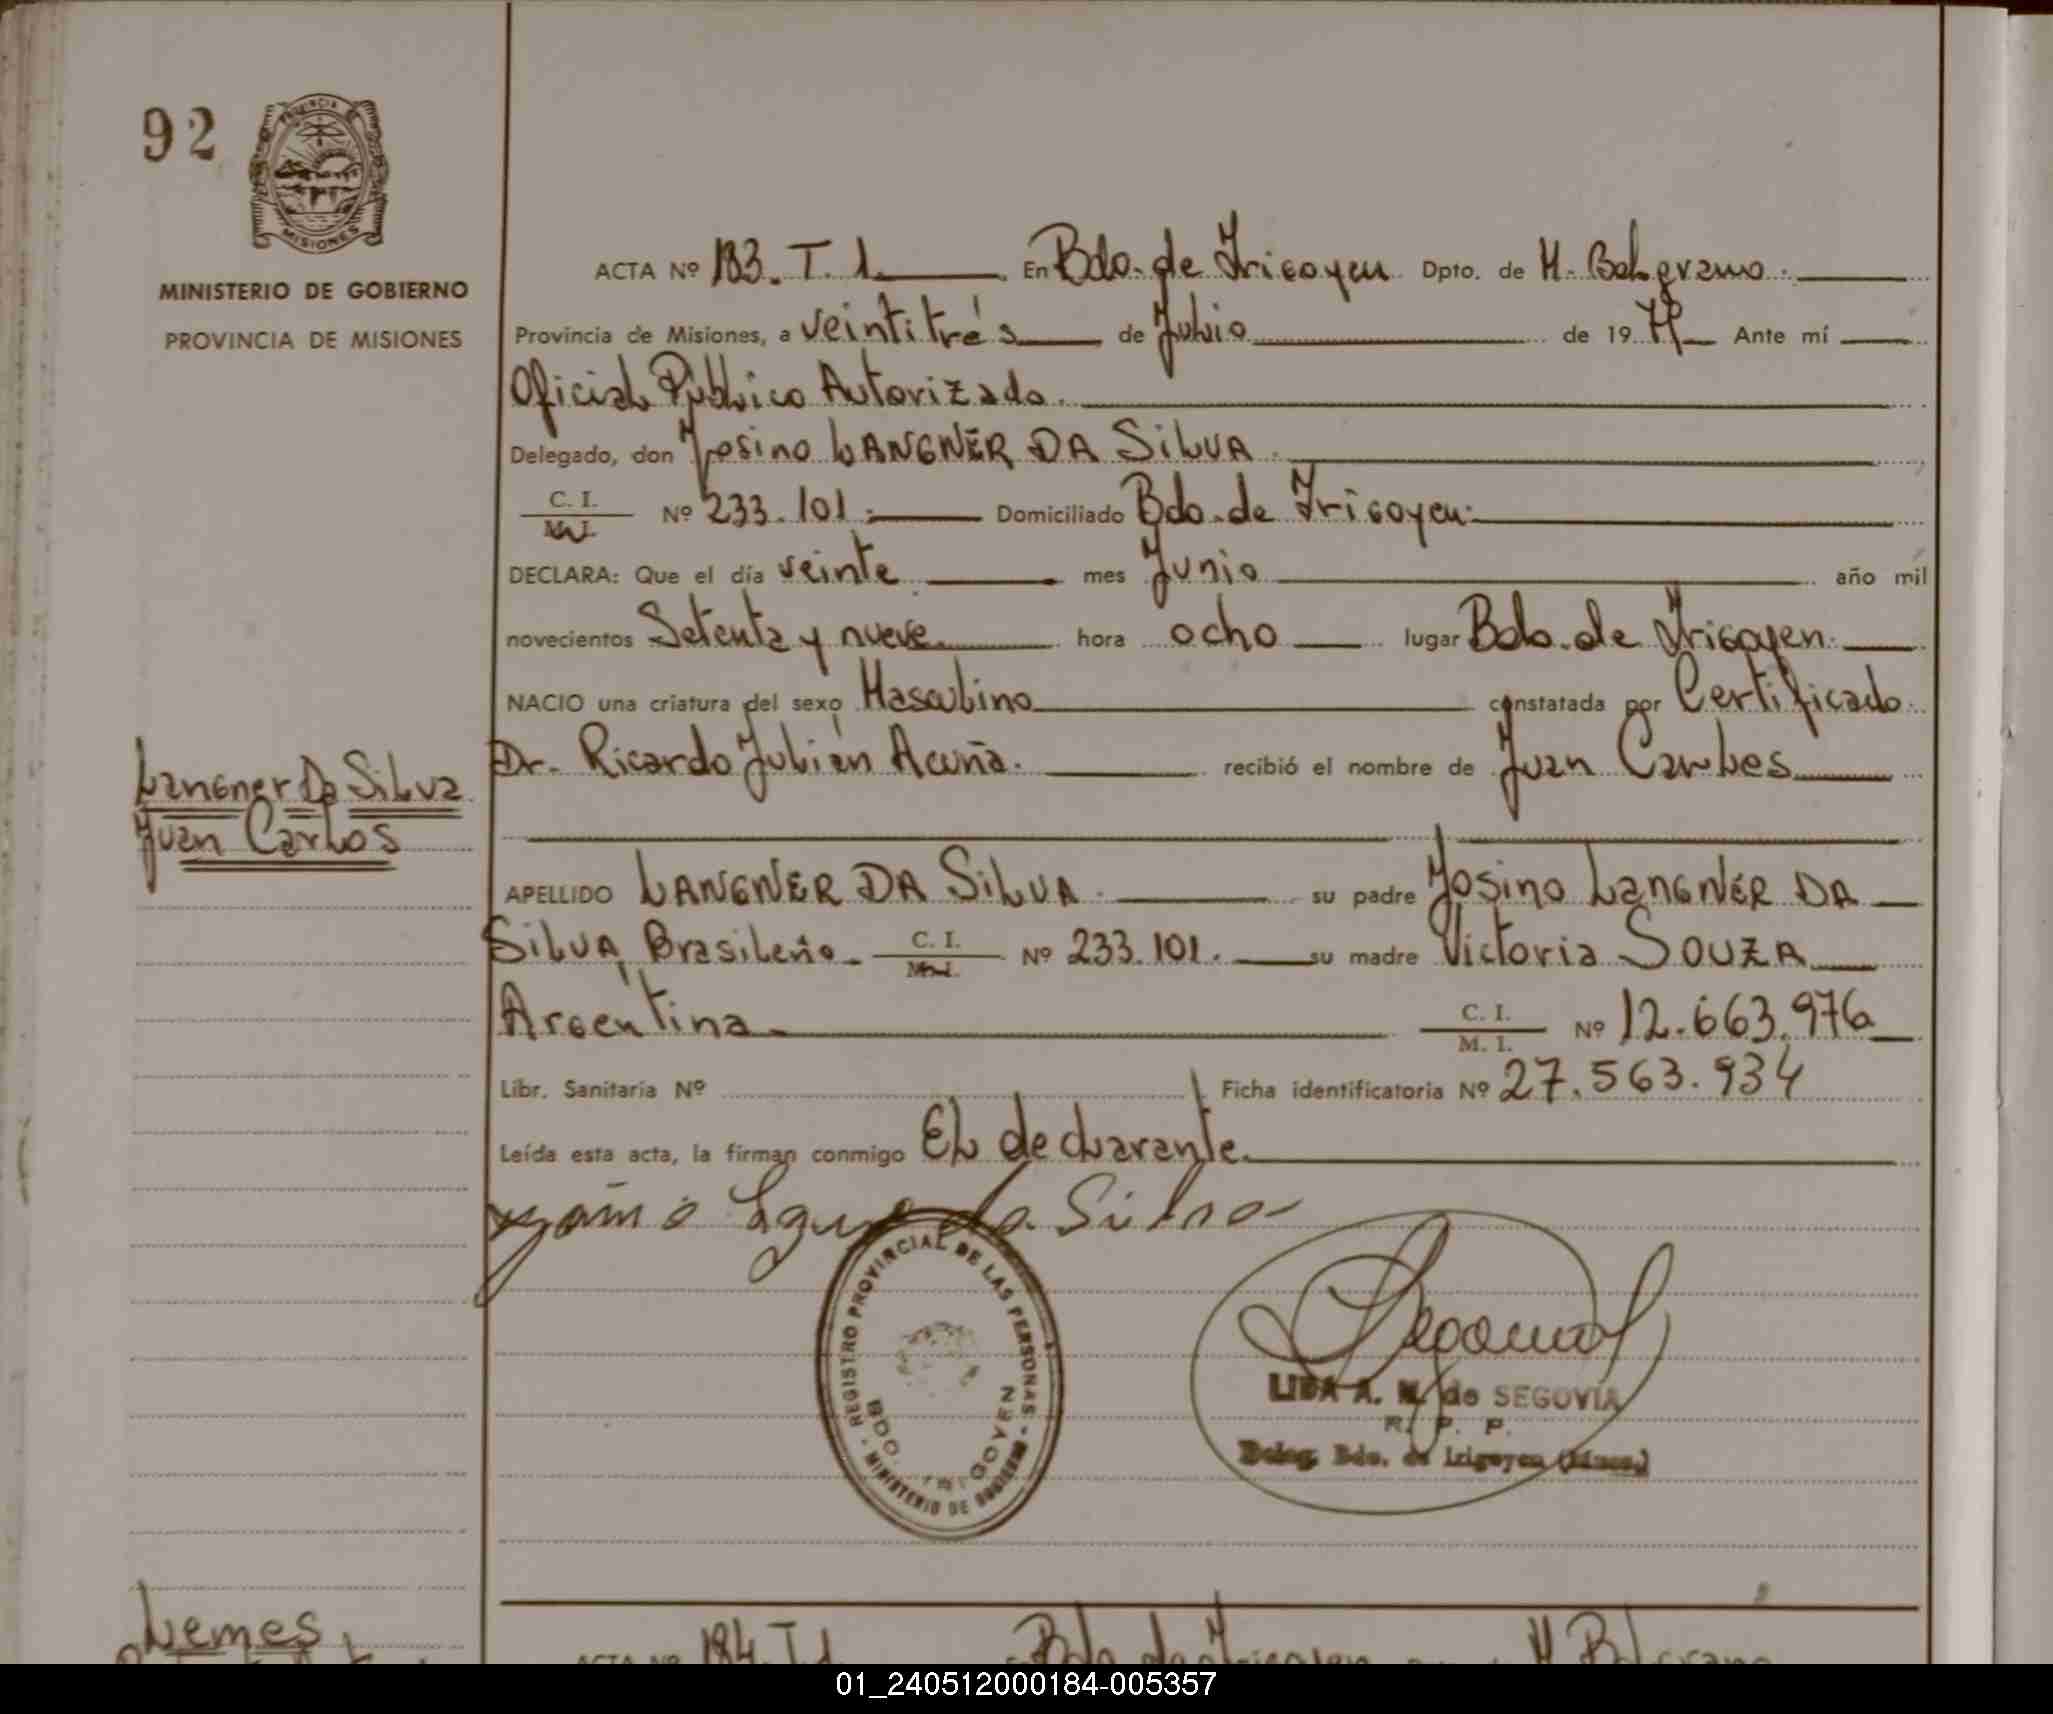 92
PROVINCIA DE
MISIONES
MINISTERIO DE GOBIERNO
PROVINCIA DE MISIONES
ACTA Nº 183. T. 1. En Bdo. de Irigoyen Dpto. de M. Belgrano.
Provincia de Misiones, a veintitrés de Julio de 19 79 Ante mí
Oficial Público Autorizado.
Delegado, don Josino LANGNER DA SILVA.
C. I.
M. I. Nº 233.101. Domiciliado Bdo. de Irigoyen.
DECLARA: Que el día veinte mes Junio año mil
novecientos Setenta y nueve hora ocho lugar Bdo. de Irigoyen.
NACIO una criatura del sexo Masculino constatada por Certificado
Dr. Ricardo Julián Acuña. recibió el nombre de Juan Carlos
Langner Da Silva
Juan Carlos
APELLIDO LANGNER DA SILVA. su padre Josino LANGNER DA
SILVA, Brasileño C. I.
M. I. Nº 233.101. su madre Victoria SOUZA
Argentina C. I.
M. I. Nº 12.663.976
Libr. Sanitaria Nº Ficha identificatoria Nº 27.563.934
Leída esta acta, la firman conmigo El declarante.
da Silva
REGISTRO PROVINCIAL DE LAS PERSONAS
BDO. IRIGOYEN
MINISTERIO DE GOBIERNO
LIDA A. N. de SEGOVIA
R. P. P.
Deleg. Bdo. de Irigoyen (Mnes.)
Lemes
ACTA Nº 184. T. 1. Bdo de Irigoyen M. Belgrano
01_240512000184-005357